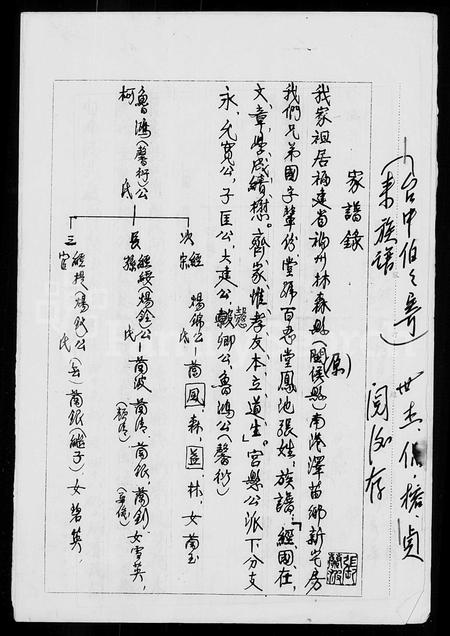 (台中伯々寄
來族譜)
世杰 佩 楷 貞
閱後存
家譜錄
我家祖居福建省福州林森縣(原閩侯縣)南港澤苗鄉新宅房
我們兄弟國字輩份堂號百忍堂鳳池張姓,族譜:「經國在,
文章,學成績懋。齊家,惟孝友本立,道生」。官縣公派下分支
永、允寬公,子匡公,大建公、懿卿公、魯鴻公(馨衍)
魯鴻(馨衍)公
柯 氏
次 經
宗 煬錦公—蘭鳳,森,益 林,女蘭玉
長 經綬(煬銓)公 蘭波 蘭清 蘭銀 蘭釗 女雪英,
孫 氏
三 經授(煬銳)公(去)蘭銀(繼子)女碧英,
官 氏
張 蘭 波